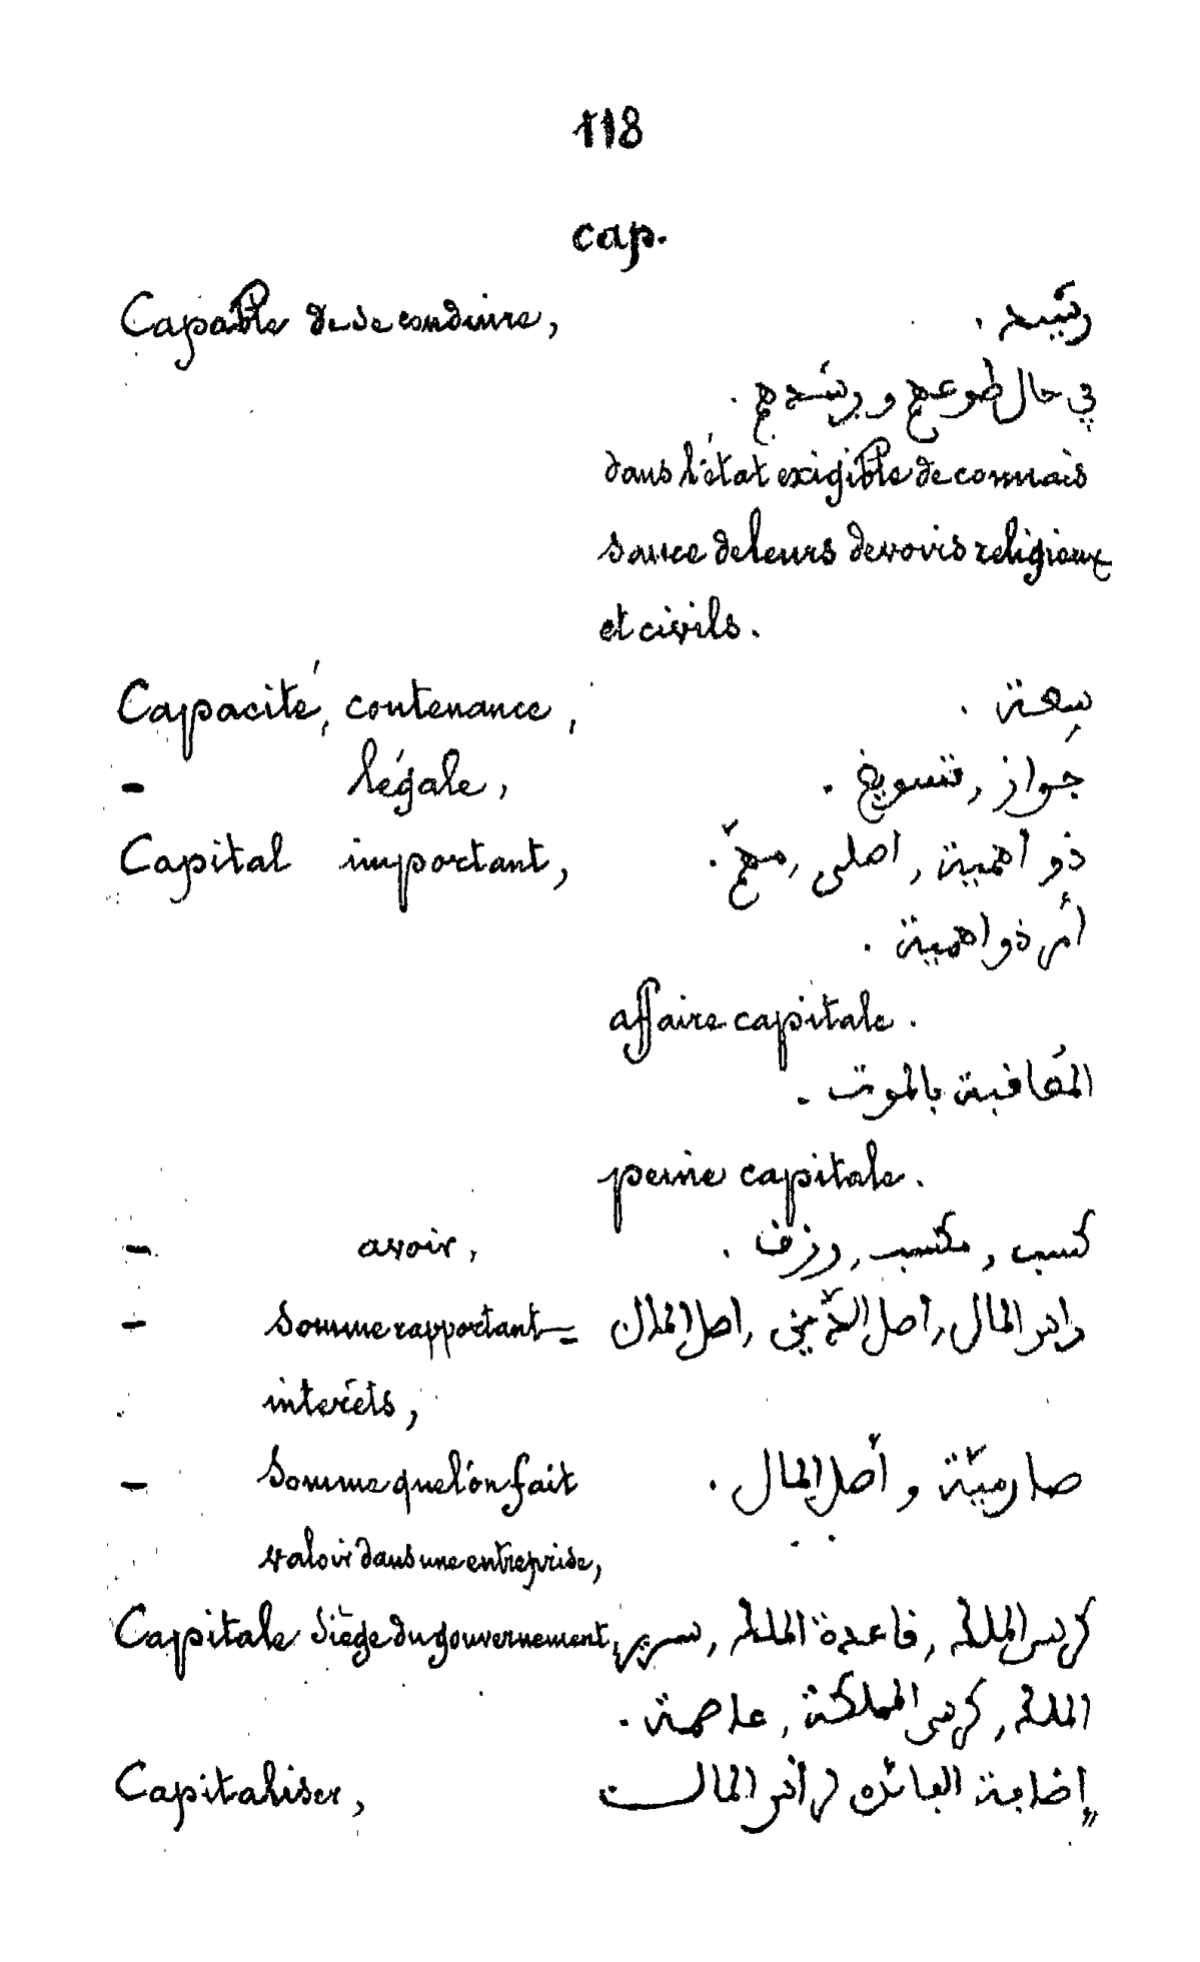 118
cap.
Capable de se conduire, رشيد .
في حال طوعهم و رشدهم .
dans l'état exigible de connais
sance de leurs devoirs religieux
et civils .
Capacité, contenance, سِعة .
- légale, جَواز , تسويغ .
Capital important, ذو اهمية , اصلى , مهمّ .
أمر ذو اهمية .
affaire capitale .
المُعاقبة بالموت .
peine capitale .
- avoir, كسب , مكسب , ورزق .
- Somme rapportant = راس المال , اصل , اصل المال
interéts,
- Somme que l'on fait صارميّة و أصل المال .
valoir dans une entreprise,
Capitale Siège du gouvernement, كرسى الملك , قاعدة الملك , سرير
الملك , كرسى المملكة , عاصمة .
Capitaliser, إضافة الفائدة لرأس المال